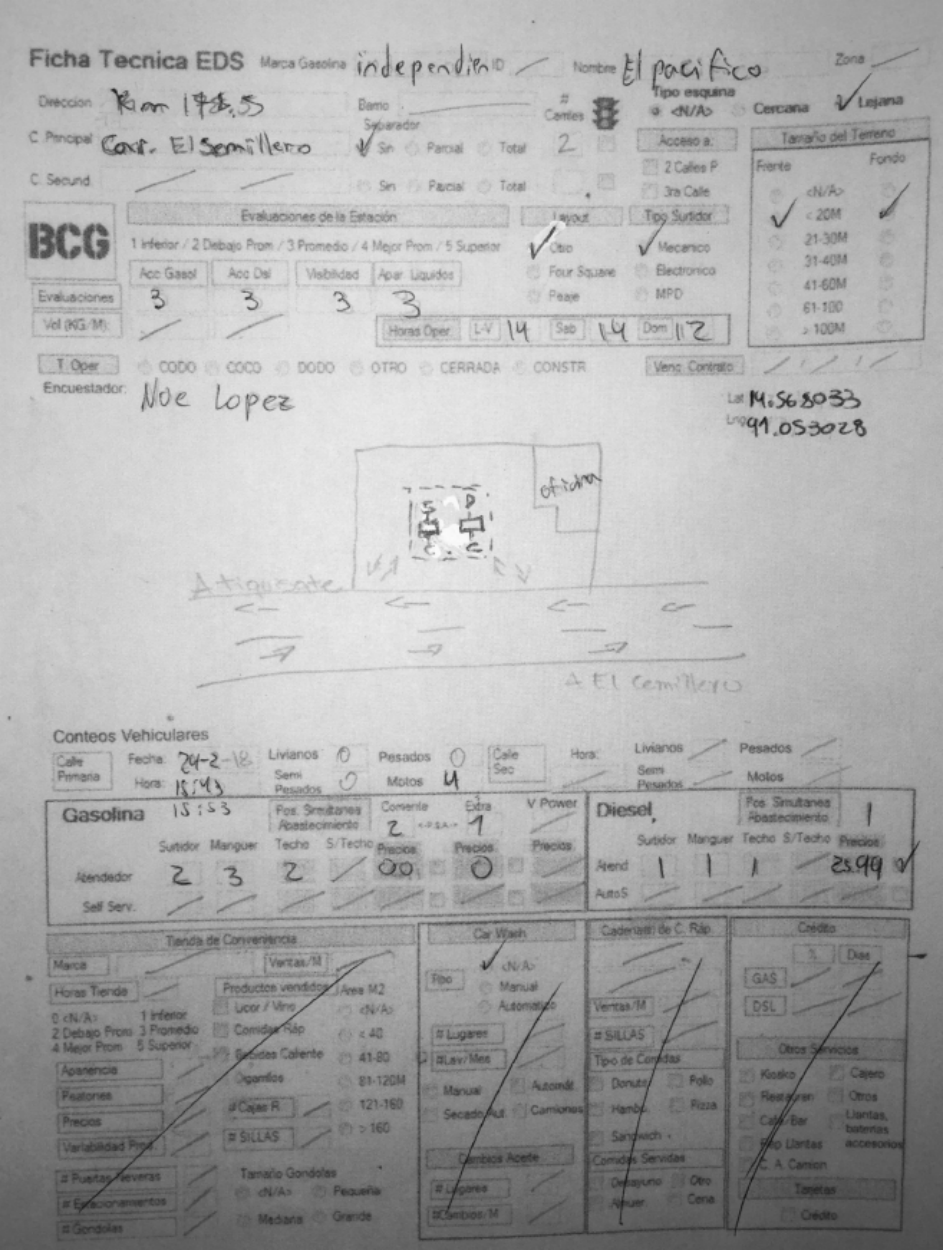 Ficha Tecnica EDS Marca Gasolina independien ID Nombre El pacifico Zona
Direccion Km 178.5 Barrio # Carriles Tipo esquina <N/A> Cercana Lejana
C. Principal Carr. El Semillero Separador Sin Parcial Total 2 Acceso a: Tamaño del Terreno
2 Calles P Frente Fondo
C. Secund. Sin Parcial Total 3ra Calle <N/A>
BCG Evaluaciones de la Estación Layout Tipo Surtidor < 20M
1 Inferior / 2 Debajo Prom / 3 Promedio / 4 Mejor Prom / 5 Superior Otro Mecanico 21-30M
Acc Gasol Acc Dsl Visibilidad Apar Liquidos Four Square Electronico 31-40M
Evaluaciones 3 3 3 3 Peaje MPD 41-60M
61-100
Vol (KG/M): Horas Oper L-V 14 Sab 14 Dom 12 > 100M
T. Oper CODO COCO DODO OTRO CERRADA CONSTR Venc Contrato
Encuestador: Noe Lopez Lat 14.568033
Lng 91.053028
oficina
S D
C C
A Tiquisate
A El Semillero
Conteos Vehiculares
Calle Primaria Fecha: 24-2-18 Livianos 0 Pesados 0 Calle Sec Hora: Livianos Pesados
Hora: 15:43 Semi Pesados 0 Motos 4 Semi Pesados Motos
Gasolina 15:53 Pos. Simultanea Abastecimiento Corriente 2 Extra 1 V Power Diesel Pos. Simultanea Abastecimiento 1
Surtidor Manguer Techo S/Techo Precios Precios Precios Surtidor Manguer Techo S/Techo Precios
Atendedor 2 3 2 00 0 Atend 1 1 1 25.99
Self Serv. AutoS
Tienda de Conveniencia Car Wash Cadenas de C. Ráp. Crédito
Marca Ventas/M <N/A> % Dias
Horas Tienda Productos vendidos Area M2 Tipo Manual GAS
0 <N/A> 1 Inferior Licor / Vino <N/A> Automatico Ventas/M DSL
2 Debajo Prom 3 Promedio Comidas Ráp < 40 # Lugares # SILLAS
4 Mejor Prom 5 Superior Bebidas Caliente 41-80 #Lav/Mes Tipo de Comidas Otros Servicios
Apariencia Cigarrillos 81-120M Manual Automát. Donuts Pollo Kiosko Cajero
Peatones # Cajas R 121-160 Secado Aut. Camiones Hambu. Pizza Restauran Otros
Precios # SILLAS > 160 Sandwich Café/Bar Llantas, baterias accesorios
Variabilidad Prod. Rep Llantas
# Puertas Neveras Tamaño Gondolas Cambios Aceite Comidas Servidas C. A. Camion
# Estacionamientos <N/A> Pequeña # Lugares Desayuno Otro Tarjetas
# Gondolas Mediana Grande #Cambios/M Almuer Cena Crédito